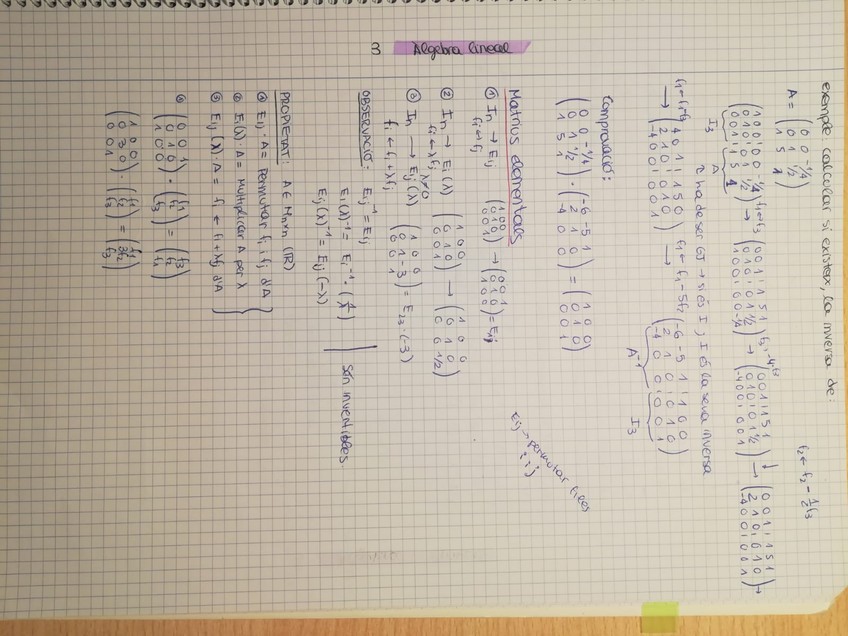 3 Àlgebra lineal
exemple calcular si existeix, la inversa de:
A = ( 0 0 -1/4
0 1 1/2
1 5 1 )
f1 ↔ f3
f2 ← f2 - 1/2 f3
I3 A
ha de ser GJ → si és I, I és la seva inversa
f1 ← f1 - 5f2
( -6 -5 1 | 1 0 0
2 1 0 | 0 1 0
-4 0 0 | 0 0 1 )
A⁻¹ I3
Comprovació:
( 0 0 -1/4
0 1 1/2
1 5 1 ) · ( -6 -5 1
2 1 0
-4 0 0 ) = ( 1 0 0
0 1 0
0 0 1 )
Matrius elementals
① In → Eij
fi ↔ fj
( 1 0 0
0 1 0
0 0 1 ) → ( 0 0 1
0 1 0
1 0 0 ) = Eij
Eij → permutar files i i j
② In → Ei (λ)
fi ← λfi λ≠0
( 1 0 0
0 1 0
0 0 1 ) → ( 1 0 0
0 1 0
0 0 1/2 )
③ In → Eij (λ)
fi ← fi + λfj
( 1 0 0
0 1 -3
0 0 1 ) = E23 (-3)
OBSERVACIÓ: Eij⁻¹ = Eij
Ei (λ)⁻¹ = Ei⁻¹ · (1/λ)
Eij (λ)⁻¹ = Eij (-λ)
Són invertibles
PROPIETAT: A ∈ Mnxn (ℝ)
① Eij · A = permutar fi, fj d'A
② Ei(λ) · A = multiplicar A per λ
③ Eij (λ) · A = fi ← fi + λfj d'A
( 0 0 1
0 1 0
1 0 0 ) · ( f1
f2
f3 ) = ( f3
f2
f1 )
( 1 0 0
0 3 0
0 0 1 ) · ( f1
f2
f3 ) = ( f1
3f2
f3 )